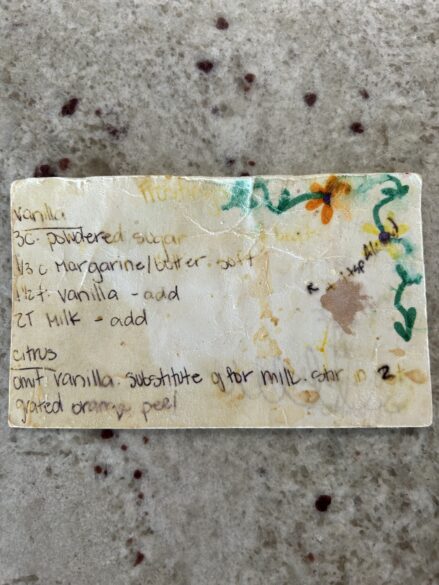 Vanilla
3c. powdered sugar
1/3 c Margarine/butter. soft
1 1/2 t Vanilla - add
2T Milk - add
citrus
omit Vanilla. substitute oj for milk. stir in 2 t
grated orange peel